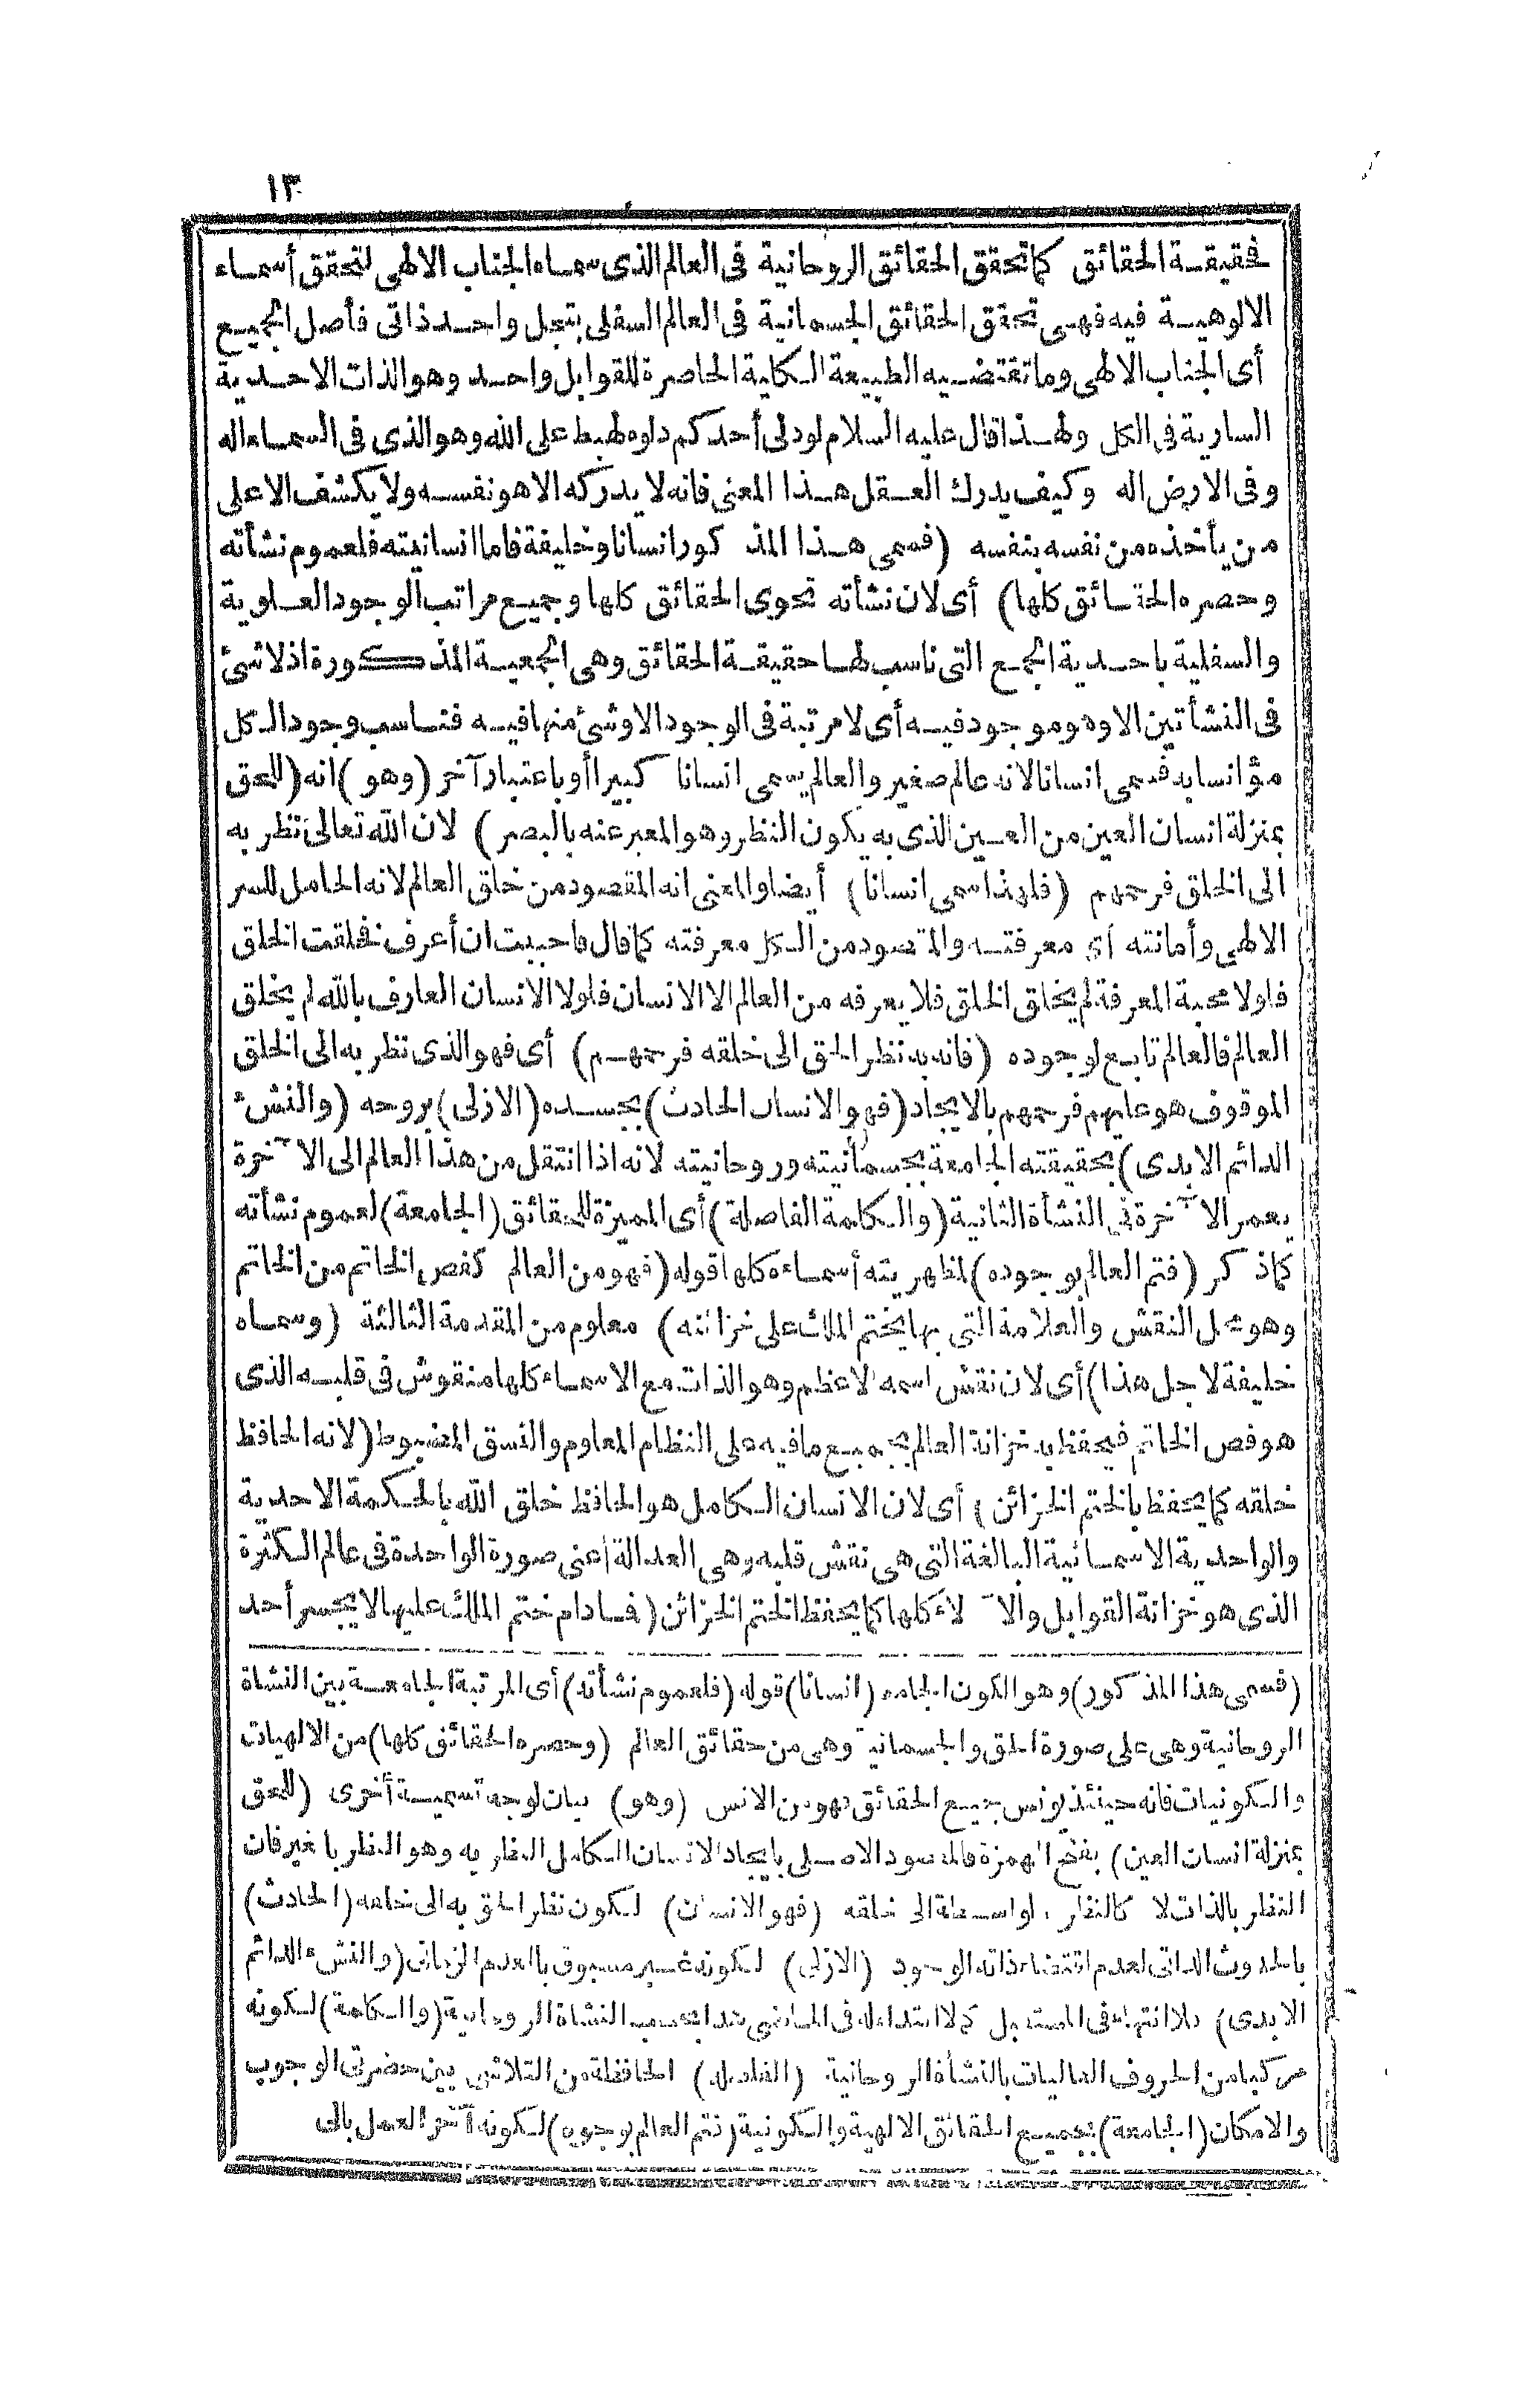 ١٣
فحقيقة الحقائق كما تحقق الحقائق الروحانية فى العالم الذى سماه الجناب الالهى لتحقق أسماء
الالوهية فيه فهى تحقق الحقائق الجسمانية فى العالم السفلى بتجل واحد ذاتى فأصل الجميع
أى الجناب الالهى وما تقتضيه الطبيعة الكلية الحاصرة للقوابل واحد وهو الذات الاحدية
السارية فى الكل ولهذا قال عليه السلام لو دلى أحدكم دلوه لهبط على الله وهو الذى فى السماء اله
وفى الارض اله وكيف يدرك العقل هذا المعنى فانه لا يدركه الا هو نفسه ولا يكشف الا على
من يأخذه من نفسه بنفسه (فسمى هذا المذكور انسانا وخليفة فاما انسانيته فلعموم نشأته
وحصره الحقائق كلها) أى لان نشأته تحوى الحقائق كلها وجميع مراتب الوجود العلوية
والسفلية باحدية الجمع التى ناسب لها حقيقة الحقائق وهى الجمعية المذكورة اذ لا شئ
فى النشأتين الا وهو موجود فيه أى لا مرتبة فى الوجود الا وشئ منها فيه فناسب وجود الكل
مؤانسا به فسمى انسانا لانه عالم صغير والعالم يسمى انسانا كبيرا أو باعتبار آخر (وهو) انه (للحق
بمنزلة انسان العين من العين الذى به يكون النظر وهو المعبر عنه بالبصر) لان الله تعالى نظر به
الى الخلق فرحمهم (فلهذا سمى انسانا) أيضا والمعنى انه المقصود من خلق العالم لانه الحامل للسر
الالهى وأمانته أى معرفته والمقصود من الكل معرفته كما قال فاحببت ان أعرف فخلقت الخلق
فلولا محبة المعرفة لم يخلق الخلق فلا يعرفه من العالم الا الانسان فلولا الانسان العارف بالله لم يخلق
العالم فالعالم تابع لوجوده (فانه به نظر الحق الى خلقه فرحمهم) أى فهو الذى نظر به الى الخلق
الموقوف هو عليهم فرحمهم بالايجاد (فهو الانسان الحادث) بجسده (الازلى) بروحه (والنشء
الدائم الابدى) بحقيقته الجامعة بجسمانيته وروحانيته لانه اذا انتقل من هذا العالم الى الآخرة
يعمر الآخرة فى النشأة الثانية (والكلمة الفاصلة) أى المميزة للحقائق (الجامعة) لعموم نشأته
كما ذكر (فتم العالم بوجوده) لمظهريته أسماءه كلها قوله (فهو من العالم كفص الخاتم من الخاتم
وهو محل النقش والعلامة التى بها يختم الملك على خزائنه) معلوم من المقدمة الثالثة (وسماه
خليفة لاجل هذا) أى لان نقش اسمه الاعظم وهو الذات مع الاسماء كلها منقوش فى قلبه الذى
هو فص الخاتم فيحفظ به خزانة العالم بجميع ما فيه على النظام المعلوم والنسق المضبوط (لانه الحافظ
خلقه كما يحفظ بالختم الخزائن) أى لان الانسان الكامل هو الحافظ خلق الله بالحكمة الاحدية
والواحدية الاسمائية البالغة التى هى نقش قلبه وهى العدالة أعنى صورة الواحدة فى عالم الكثرة
الذى هو خزانة القوابل والآلاء كلها كما يحفظ الختم الخزائن (فمادام ختم الملك عليها لا يجسر أحد
(فسمى هذا المذكور) وهو الكون الجامع (انسانا) قوله (فلعموم نشأته) أى المرتبة الجامعة بين النشاة
الروحانية وهى على صورة الحق والجسمانية وهى من حقائق العالم (وحصره الحقائق كلها) من الالهيات
والكونيات فانه حينئذ يونس جميع الحقائق فهو من الانس (وهو) بيان لوجه تسمية أخرى (للحق
بمنزلة انسان العين) بفتح الهمزة فالمقصود الاصلى بايجاد الانسان الكامل النظر به وهو النظر بالغير فان
النظر بالذات لا كالنظر بواسطة الى خلقه (فهو الانسان) لكون نظر الحق به الى خلقه (الحادث)
بالحدوث الذاتى لعدم اقتضاء ذاته الوجود (الازلى) لكونه غير مسبوق بالعدم الزمانى (والنشء الدائم
الابدى) فلا انتهاء فى المستقبل كما لا ابتداء له فى الماضى هذا بحسب النشاة الروحانية (والكلمة) لكونه
مركبا من الحروف العاليات بالنشأة الروحانية (الفاصلة) الحافظة من التلاشى بين حضرتى الوجوب
والامكان (الجامعة) بجميع الحقائق الالهية والكونية (فتم العالم بوجوده) لكونه آخر العمل بالى